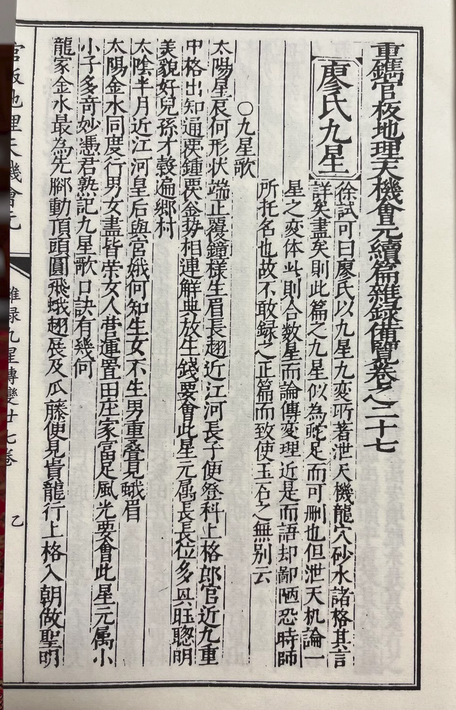 重鐫官板地理天機會元續篇雜錄備覽卷之二十七
廖氏九星
徐試可曰廖氏以九星九變巧著泄天機龍穴砂水諸格其言
詳矣盡矣則此篇之九星似為蛇足而可删也但泄天机論一
星之変体此則合数星而論傳变理近是而語却鄙陋恐時師
所托名也故不敢録之正篇而致使玉石之無别云
○九星歌
太陽星辰何形状端正覆鐘樣生眉長趐近江河長子便登科上格郎官近九重
中格出知通要鍾要金勢相連解與放生錢要會此星元属長長位多興旺聦明
美貌好兒孫才穀遍鄉村
太陰半月近江河皇后與宮娥何知生女不生男重叠見蛾眉
太陽金水同度行男女盡皆荣女人営運置田庄家富足風光要會此星元属小
小子多奇妙憑君熟記九星歌口訣有幾何
龍家金水最為先腳動頂頭圓飛蛾趐展及瓜藤便見貴龍行上格入朝做聖明
官板地理天機會元
雜録九星傳變廿七卷
乙